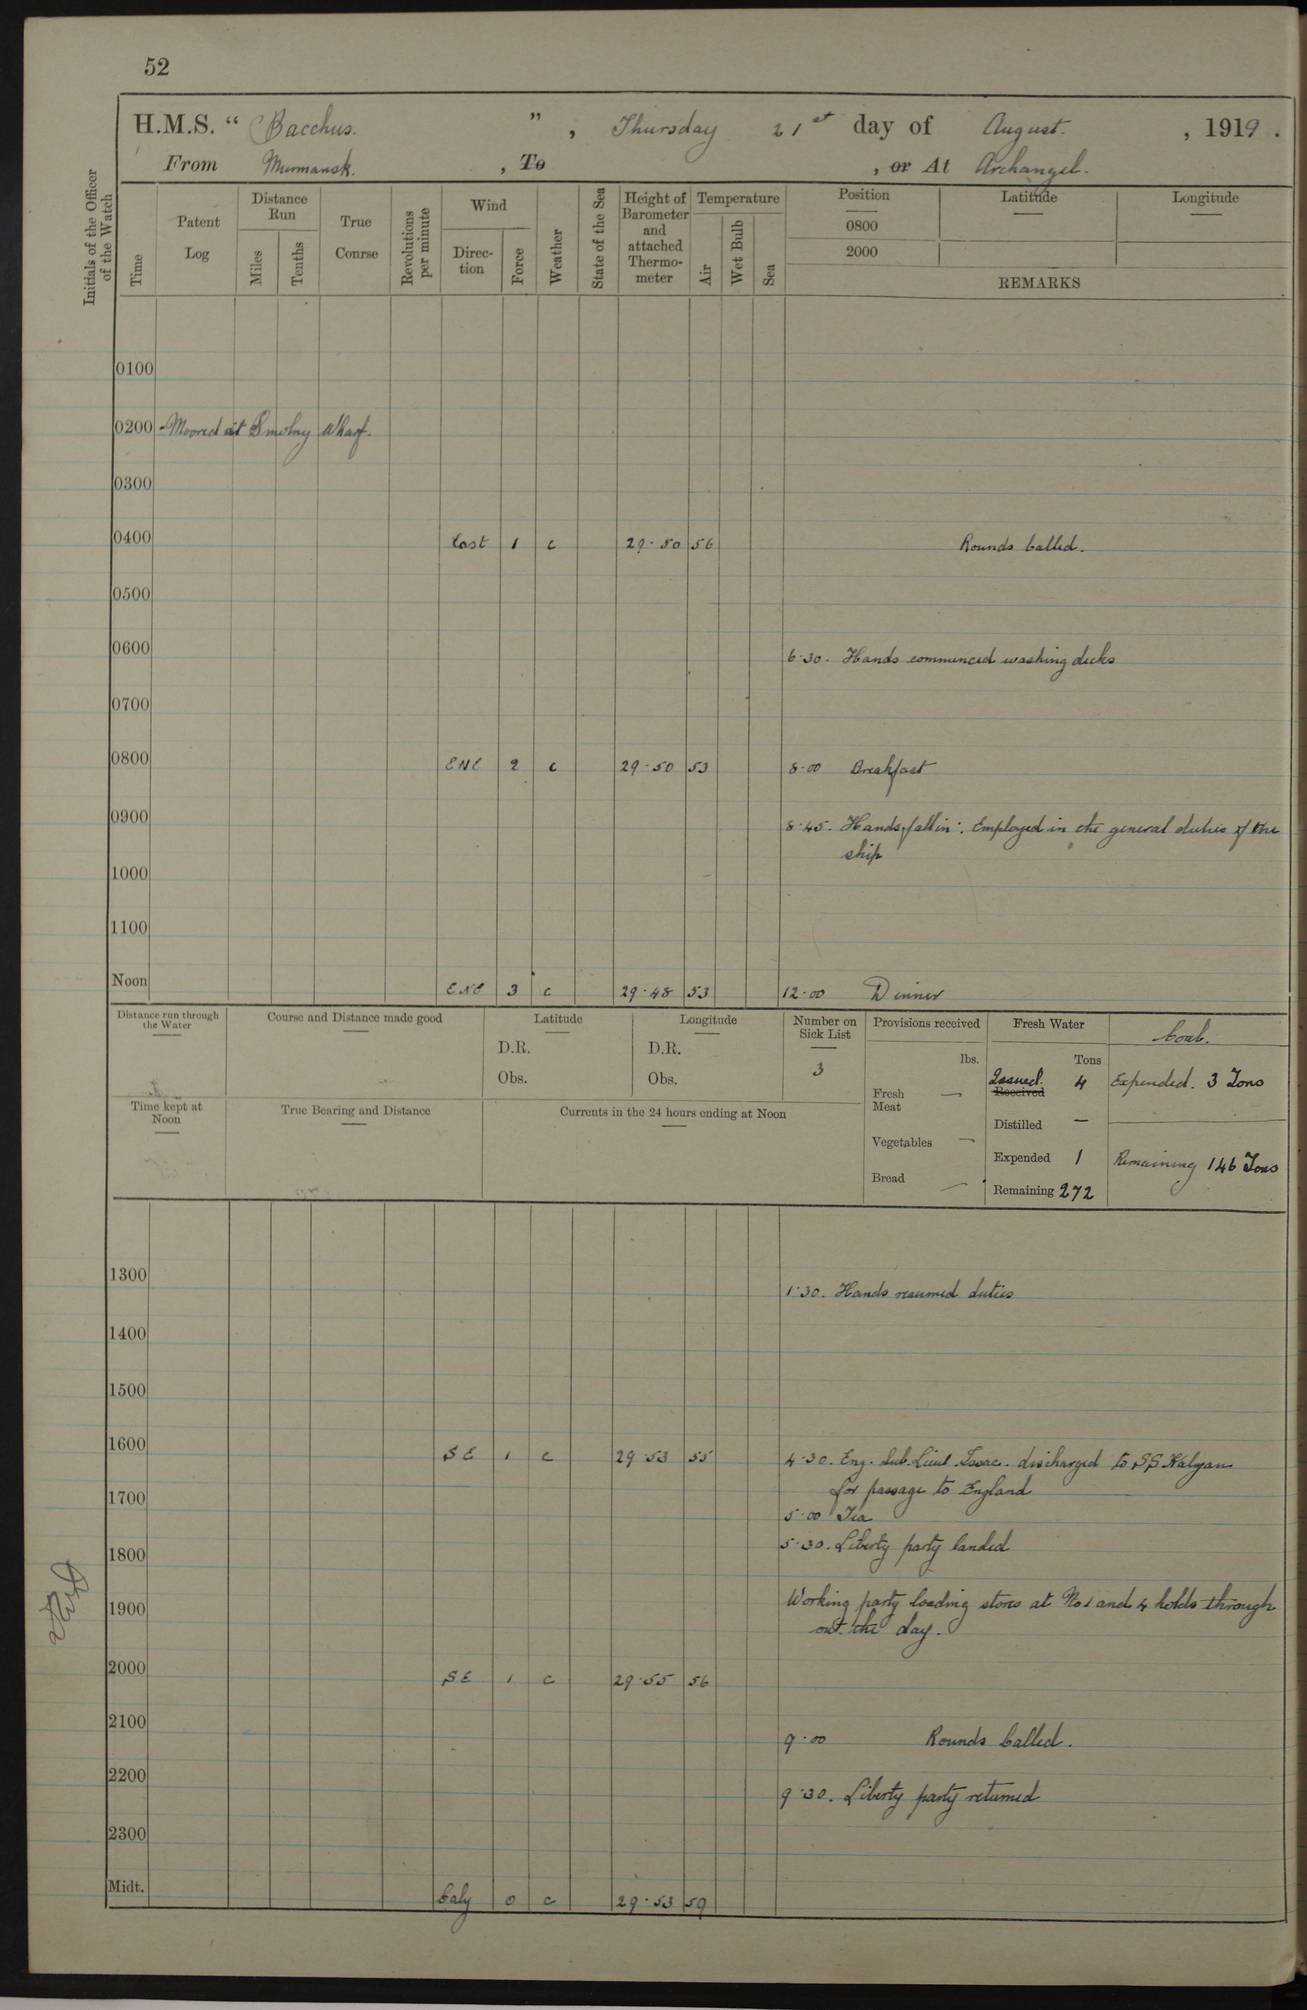 52
H.M.S. “ Bacchus. ” , Thursday 21st day of August. , 1919 .
From Murmansk. , To , or At Archangel.
Initials of the Officer of the Watch
Time
Patent Log
Distance Run
Miles
Tenths
True Course
Revolutions per minute
Wind
Direction
Force
Weather
State of the Sea
Height of Barometer and attached Thermometer
Temperature
Air
Wet Bulb
Sea
Position Latitude Longitude
0800
2000
REMARKS
0100
0200 Moored at Smolny Wharf.
0300
0400 East 1 c 29·50 56 Rounds Called.
0500
0600
6·30. Hands commenced washing decks
0700
0800 ENE 2 c 29·50 53 8·00 Breakfast
0900
8·45. Hands fall in: Employed in the general duties of the
ship
1000
1100
Noon ENE 3 c 29·48 53 12·00 Dinner
Distance run through the Water
Course and Distance made good
Latitude
D.R.
Obs.
Longitude
D.R.
Obs.
Number on Sick List
3
Provisions received
lbs.
Fresh Meat —
Vegetables —
Bread —
Fresh Water
Tons
Issued. Received 4
Distilled —
Expended 1
Remaining 272
Coal.
Expended. 3 Tons
Remaining 146 Tons
Time kept at Noon
True Bearing and Distance
Currents in the 24 hours ending at Noon
1300
1·30. Hands resumed duties
1400
1500
1600 SE 1 c 29·53 55 4·30. Eng. Sub. Lieut. Isaac. discharged to SS Kalyan
for passage to England
1700
5·00 Tea
5·30. Liberty party landed
1800
1900 Working party loading stores at No 1 and 4 holds through
out the day.
2000 SE 1 c 29·55 56
2100
9·00 Rounds Called.
2200
9·30. Liberty party returned
2300
Midt. Calm 0 c 29·53 59